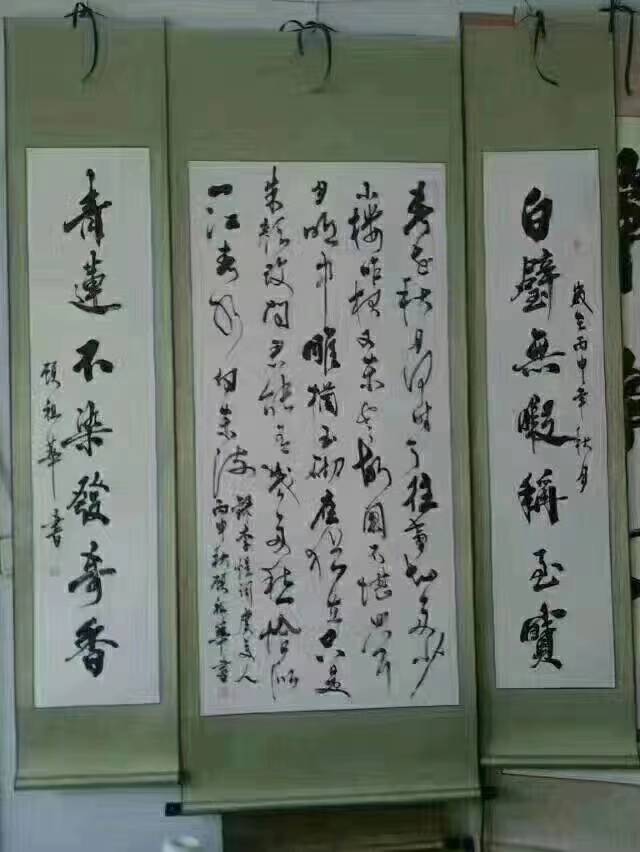 白璧無暇稱至寶
歲在丙申年秋月
春花秋月何時了往事知多少
小樓昨夜又東風故國不堪回首
月明中雕欄玉砌應猶在只是
朱顏改問君能有幾多愁恰似
一江春水向東流
錄李煜詞虞美人
丙申秋顧祖華書
青蓮不染發奇香
顧祖華書